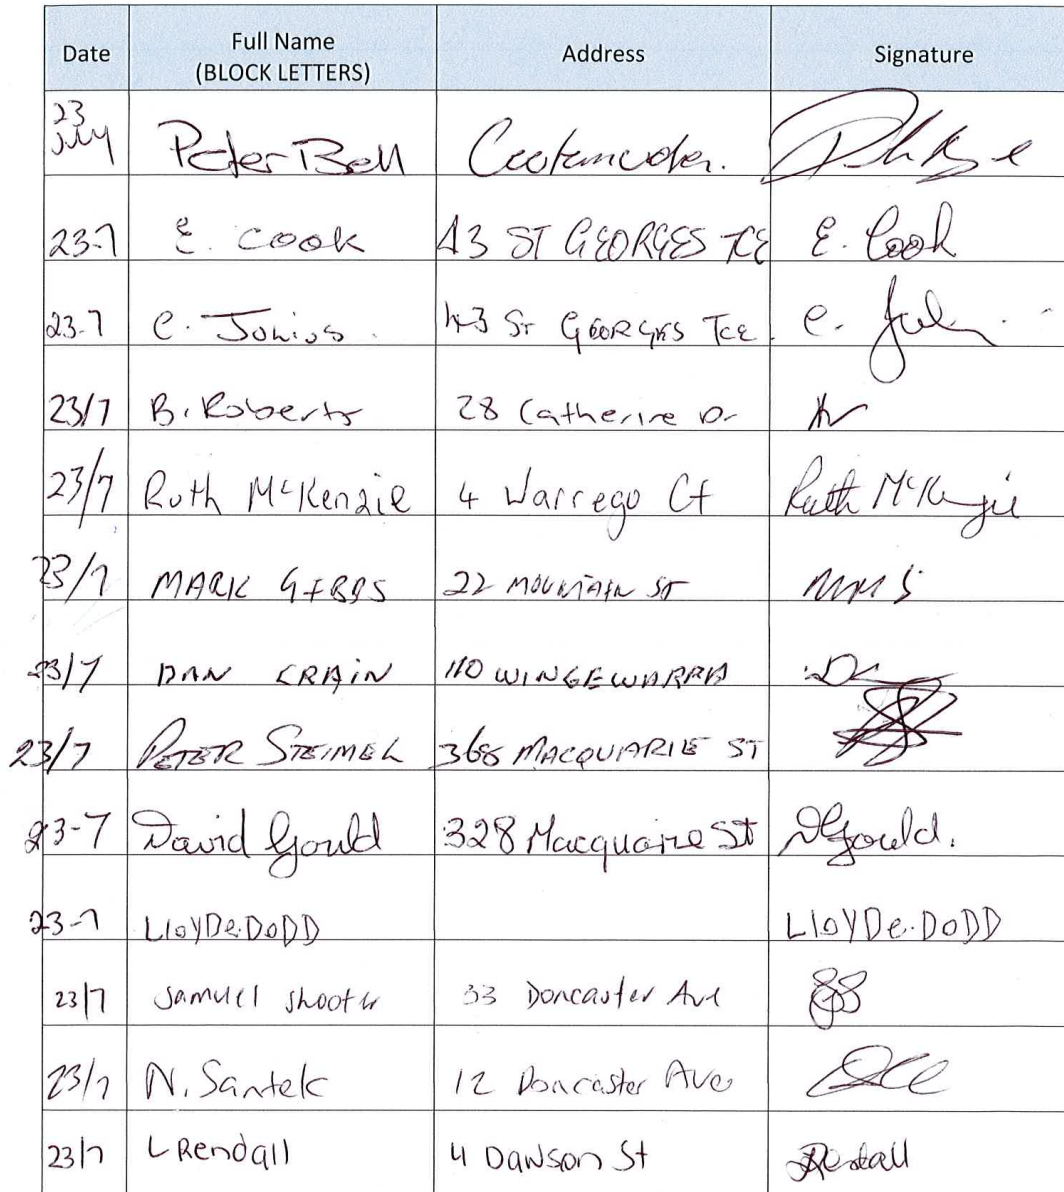 Date Full Name Address Signature
(BLOCK LETTERS)
23
July Peter Bell Cootamundra.
23-7 E. COOK 43 ST GEORGES TCE E. Cook
23.7 C. Junios. 43 ST GEORGES TCE. C.
23/7 B. Roberts 28 Catherine Dr
23/7 Ruth McKenzie 4 Warrego Ct Ruth McKenzie
23/7 MARK GIBBS 22 MOUNTAIN ST
23/7 DAN CRAIN 110 WINGEWARRA
23/7 PETER STEIMEL 368 MACQUARIE ST
23-7 David Gould 328 Macquarie St DGould.
23-7 LloYDe.DoDD LloYDe.DoDD
23/7 Samuel Shooter 33 Doncaster Ave
23/7 N. Santek 12 Doncaster Ave
23/7 L Rendall 4 Dawson St Rendall